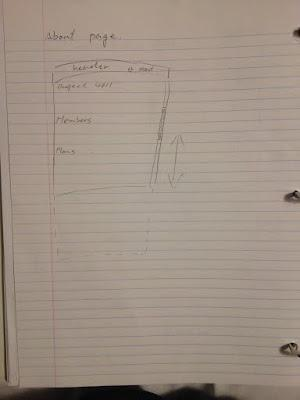 About page.
header
Project
Members
Plans